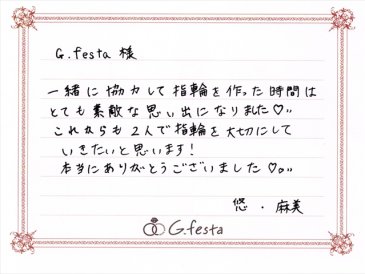 G.festa 様
一緒に協力して指輪を作った時間は
とても素敵な思い出になりました♡..
これからも2人で指輪を大切にして
いきたいと思います!
本当にありがとうございました♡。..
悠・麻美
G.festa